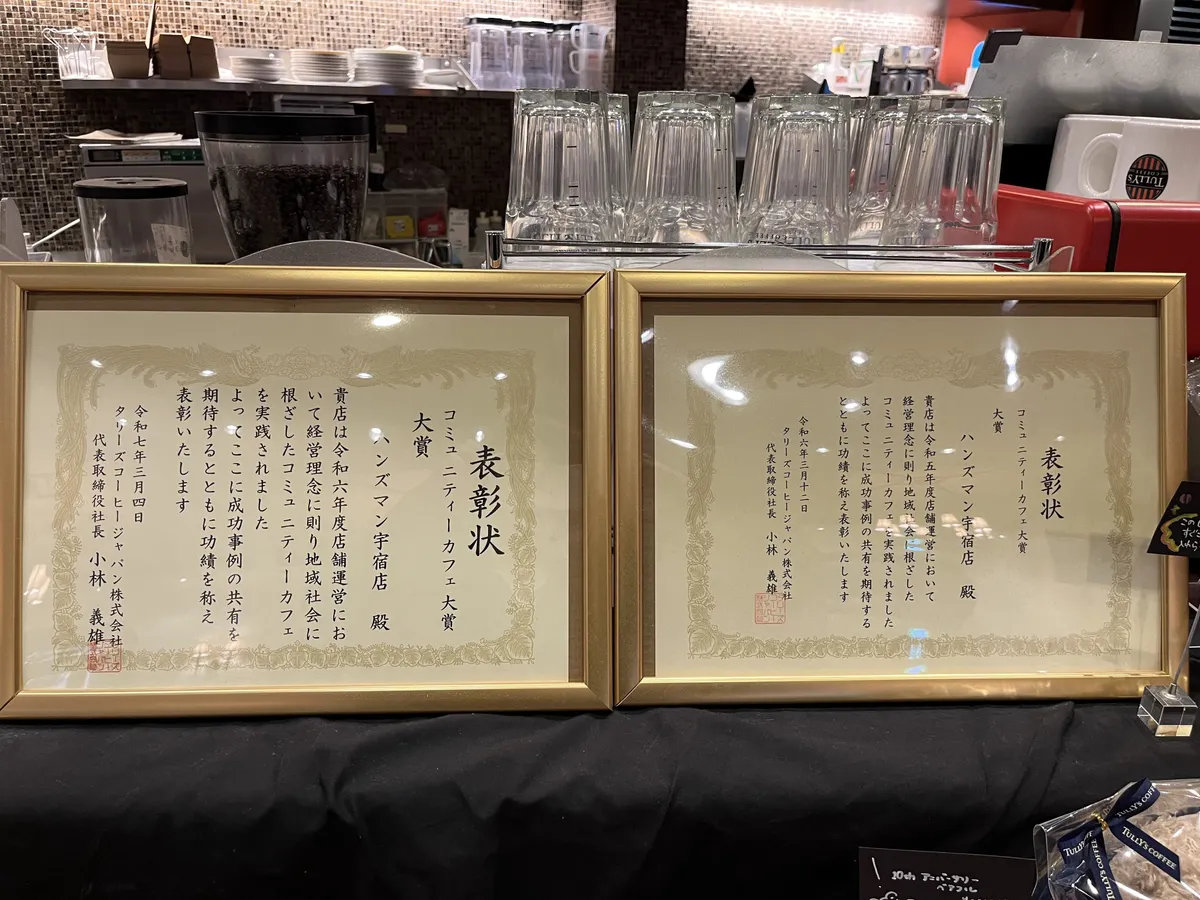 表彰状
コミュニティーカフェ大賞
大賞
ハンズマン宇宿店 殿
貴店は令和六年度店舗運営にお
いて経営理念に則り地域社会に
根ざしたコミュニティーカフェ
を実践されました
よってここに成功事例の共有を
期待するとともに功績を称え
表彰いたします
令和七年三月四日
タリーズコーヒージャパン株式会社
代表取締役社長 小林 義雄
表彰状
コミュニティーカフェ大賞
大賞
ハンズマン宇宿店 殿
貴店は令和五年度店舗運営において
経営理念に則り地域社会に根ざした
コミュニティーカフェを実践されました
よってここに成功事例の共有を期待する
とともに功績を称え表彰いたします
令和六年三月十二日
タリーズコーヒージャパン株式会社
代表取締役社長 小林 義雄
TULLY'S
COFFEE
10th アニバーサリー
ベアフル
TULLY'S COFFEE
TULLY'S COFFEE